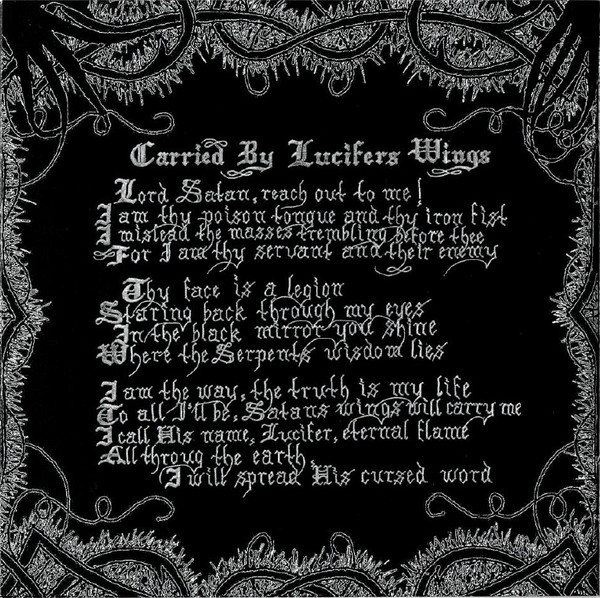 Carried By Lucifers Wings
Lord Satan, reach out to me!
I am thy poison tongue and thy iron fist
I mislead the masses trembling before thee
For I am thy servant and their enemy
Thy face is a legion
Staring back through my eyes
In the black mirror you shine
Where the Serpents wisdom lies
I am the way, the truth is my life
To all I'll be, Satans wings will carry me
I call His name, Lucifer, eternal flame
All throug the earth,
I will spread His cursed word